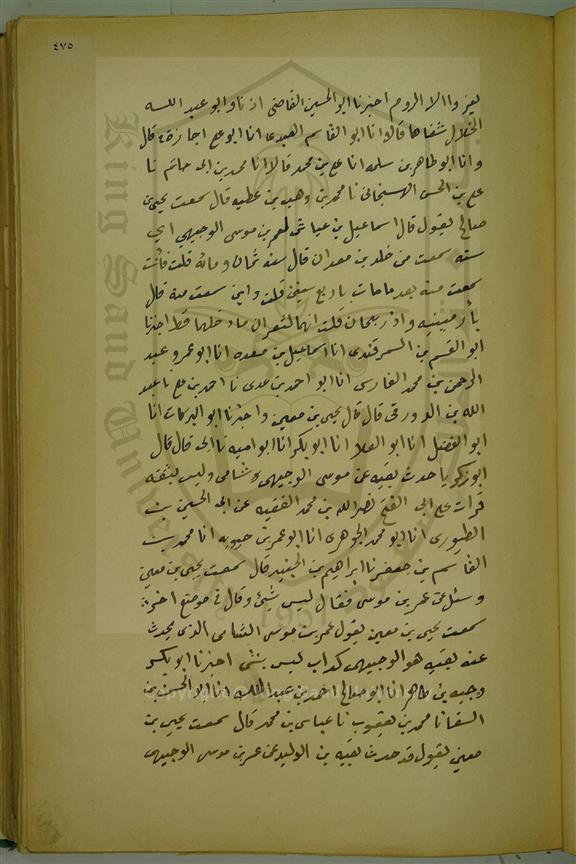 ٤٧٥
يغزوا الا الروم اخبرنا ابو الحسين القاضي اذنا وابو عبد الله
الخلال شفاها قالا انا ابو القاسم العبدى انا ابو علي اجازة ح قال
وانا ابو طاهر بن سلمه انا علي بن محمد قالا انا محمد بن ابى حاتم نا
علي بن الحسن الهسنجاني نا محمد بن وهب بن عطيه قال سمعت يحيى بن
صالح يقول قال اسماعيل بن عياش لعمر بن موسى الوجيهي اي
سنه سمعت من خلد بن معدان قال سنه ثمان ومائه قلت فانت
سمعت منه بعد ما مات باربع سنين قلت واين سمعت منه قال
بأرمينيه واذربيجان قلت انهما لثغران ما دخلهما قط اخبرنا
ابو القسم بن السمرقندى انا اسماعيل بن مسعده انا ابو عمرو عبد
الرحمن بن محمد الفارسى انا ابو احمد بن عدى نا احمد بن علي نا عبد
الله بن الدورقى قال قال يحيى بن معين واخبرنا ابو البركات انا
ابو الفضل انا ابو العلا انا ابو بكر انا ابو اميه نا ابى قال قال
ابو زكريا حدث بقيه عن موسى الوجيهى شامى وليس بثقه
قرات على ابى الفتح نصر الله بن محمد الفقيه عن ابى الحسين بن
الطيورى انا ابو محمد الجوهرى انا ابو عمر بن حيويه انا محمد بن
القاسم بن جعفر نا ابراهيم بن الجنيد قال سمعت يحيى بن معين
وسئل عن عمر بن موسى فقال ليس بشئ وقال في موضع اخر
سمعت يحيى بن معين يقول عمر بن موسى الشامى الذى يحدث
عنه بقيه هو الوجيهى كذاب ليس بشى اخبرنا ابو بكر
وجيه بن طاهر انا ابو صالح احمد بن عبد الملك انا ابو الحسن بن
السقا نا محمد بن يعقوب نا عباس بن محمد قال سمعت يحيى بن
معين يقول قد حدث بقيه بن الوليد عن عمر بن موسى الوجيهى